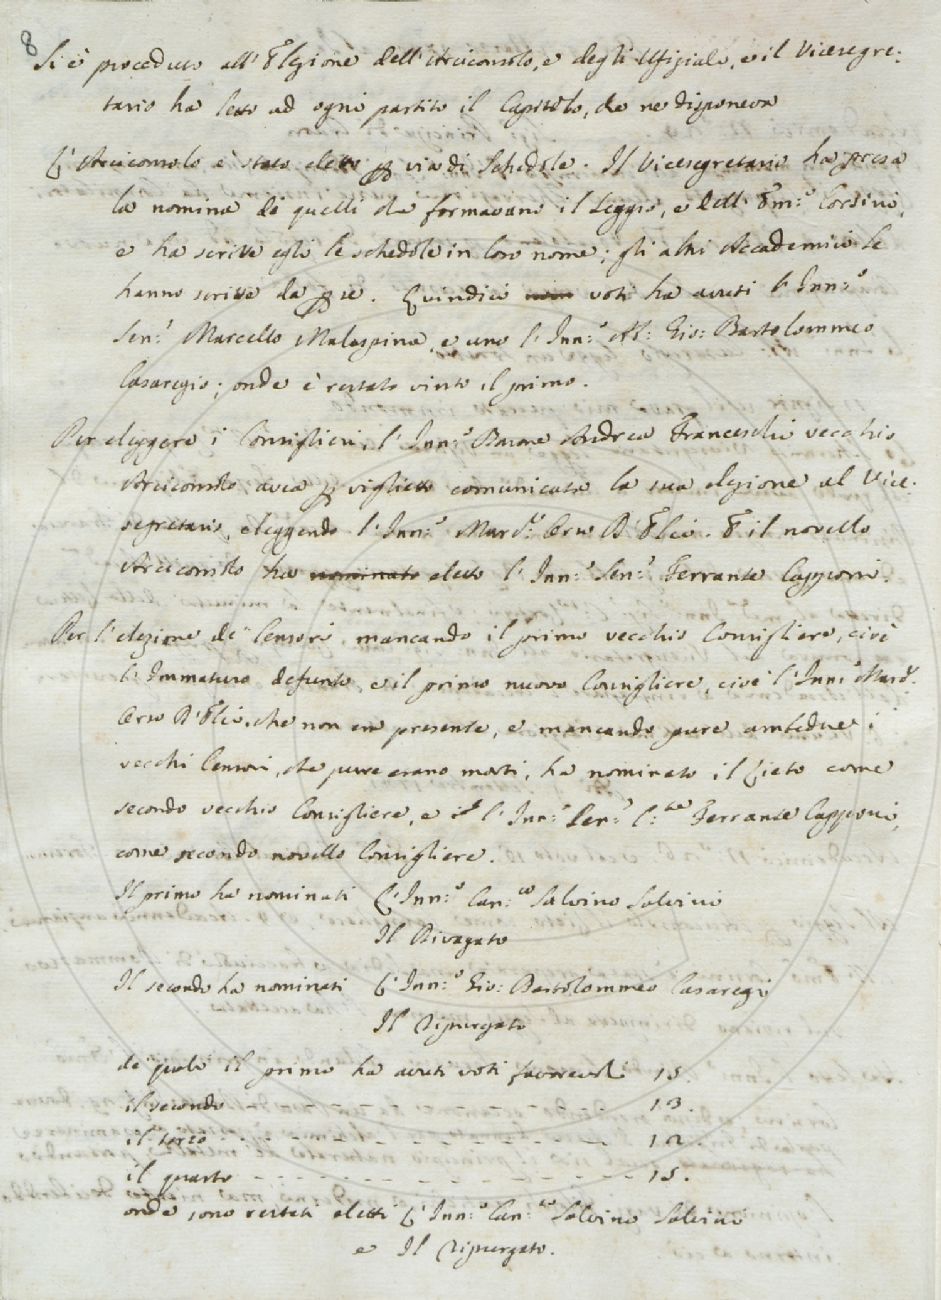 8
Si è proceduto all'Elezione dell'Arciconsolo, e degli Ufiziali, e il Vicesegre-
tario ha letto ad ogni partito il Capitolo, che ne disponeva
L'Arciconsolo è stato eletto p via di Schedole. Il Vicesegretario ha presa
la nomina di quelli che formavano il Seggio, e dell' Em.o Corsini,
e ha scritte egli le schedole in loro nome; gli altri Accademici le
hanno scritte da p se. Quindici voti ha avuti l'Inn.o
Sen.r Marcello Malaspina, e uno l'Inn.o Ab: Gio: Bartolommeo
Casaregio; onde è restato vinto il primo.
Per eleggere i Consiglieri, l'Inn.o Barone Andrea Franceschi vecchio
Arciconsolo avea p viglietto comunicata la sua elezione al Vice-
segretario, eleggendo l'Inn.o March.e Orso D'Elci. E il novello
Arciconsolo ha nominato eletto l'Inn.o Sen.r Ferrante Capponi.
Per l'elezione de' Censori, mancando il primo vecchio Consigliere, cioè
l'Immaturo defunto, e il primo nuovo Consigliere, cioè l'Inn.o March.e
Orso D'Elci, che non era presente, e mancando pure ambedue i
vecchi Censori, che pure erano morti, ha nominato il Lieto come
secondo vecchio Consigliere, e l'Inn.o Sen.r Ferrante Capponi,
come secondo novello Consigliere.
Il primo ha nominati L'Inn.o Can.co Salvino Salvini
Il Divagato
Il secondo ha nominati L'Inn.o Gio: Bartolommeo Casaregi
Il Ripurgato
de' quali il primo ha avuti voti favorevoli 15.
il secondo - - - - - - - - - - 13.
il terzo - - - - - - - - - - 12.
il quarto - - - - - - - - - - 15.
onde sono restati eletti L'Inn.o Can.co Salvino Salvini
e Il Ripurgato.